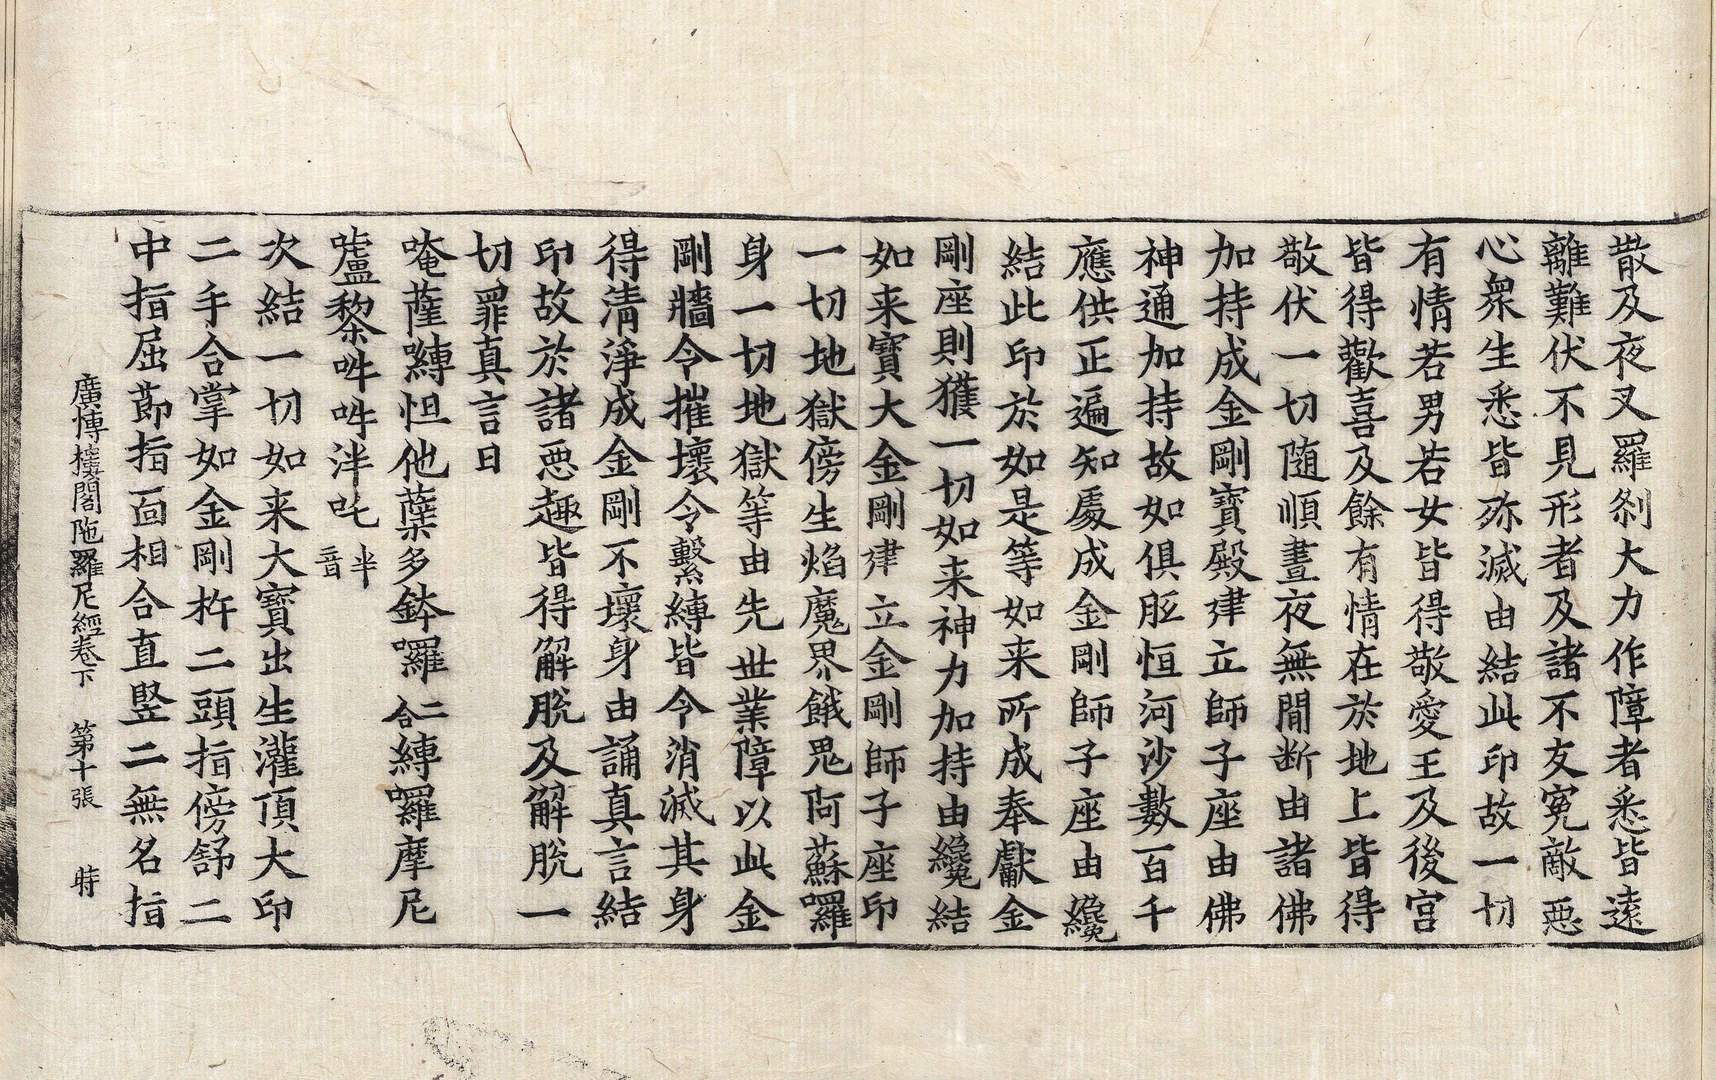 散及夜叉羅刹大力作障者悉皆遠
離難伏不見形者及諸不友寃敵惡
心衆生悉皆殄滅由結此印故一切
有情若男若女皆得敬愛王及後宮
皆得歡喜及餘有情在於地上皆得
敬伏一切隨順晝夜無間斷由諸佛
加持成金剛寶殿建立師子座由佛
神通加持故如俱胝恒河沙數百千
應供正遍知處成金剛師子座由纔
結此印於如是等如来所成奉獻金
剛座則獲一切如来神力加持由纔結
如来寶大金剛建立金剛師子座印
一切地獄傍生焰魔界餓鬼阿蘇囉
身一切地獄等由先世業障以此金
剛牆令摧壞令繫縛皆令消滅其身
得清淨成金剛不壞身由誦真言結
印故於諸惡趣皆得解脫及解脫一
切罪真言曰
唵薩嚩怛他蘖多鉢囉二合縛囉摩尼
嚧黎吽吽泮吒半音
次結一切如来大寶出生灌頂大印
二手合掌如金剛杵二頭指傍舒二
中指屈節指面相合直竪二無名指
廣愽樓閣陁羅尼經卷下 第十張 時